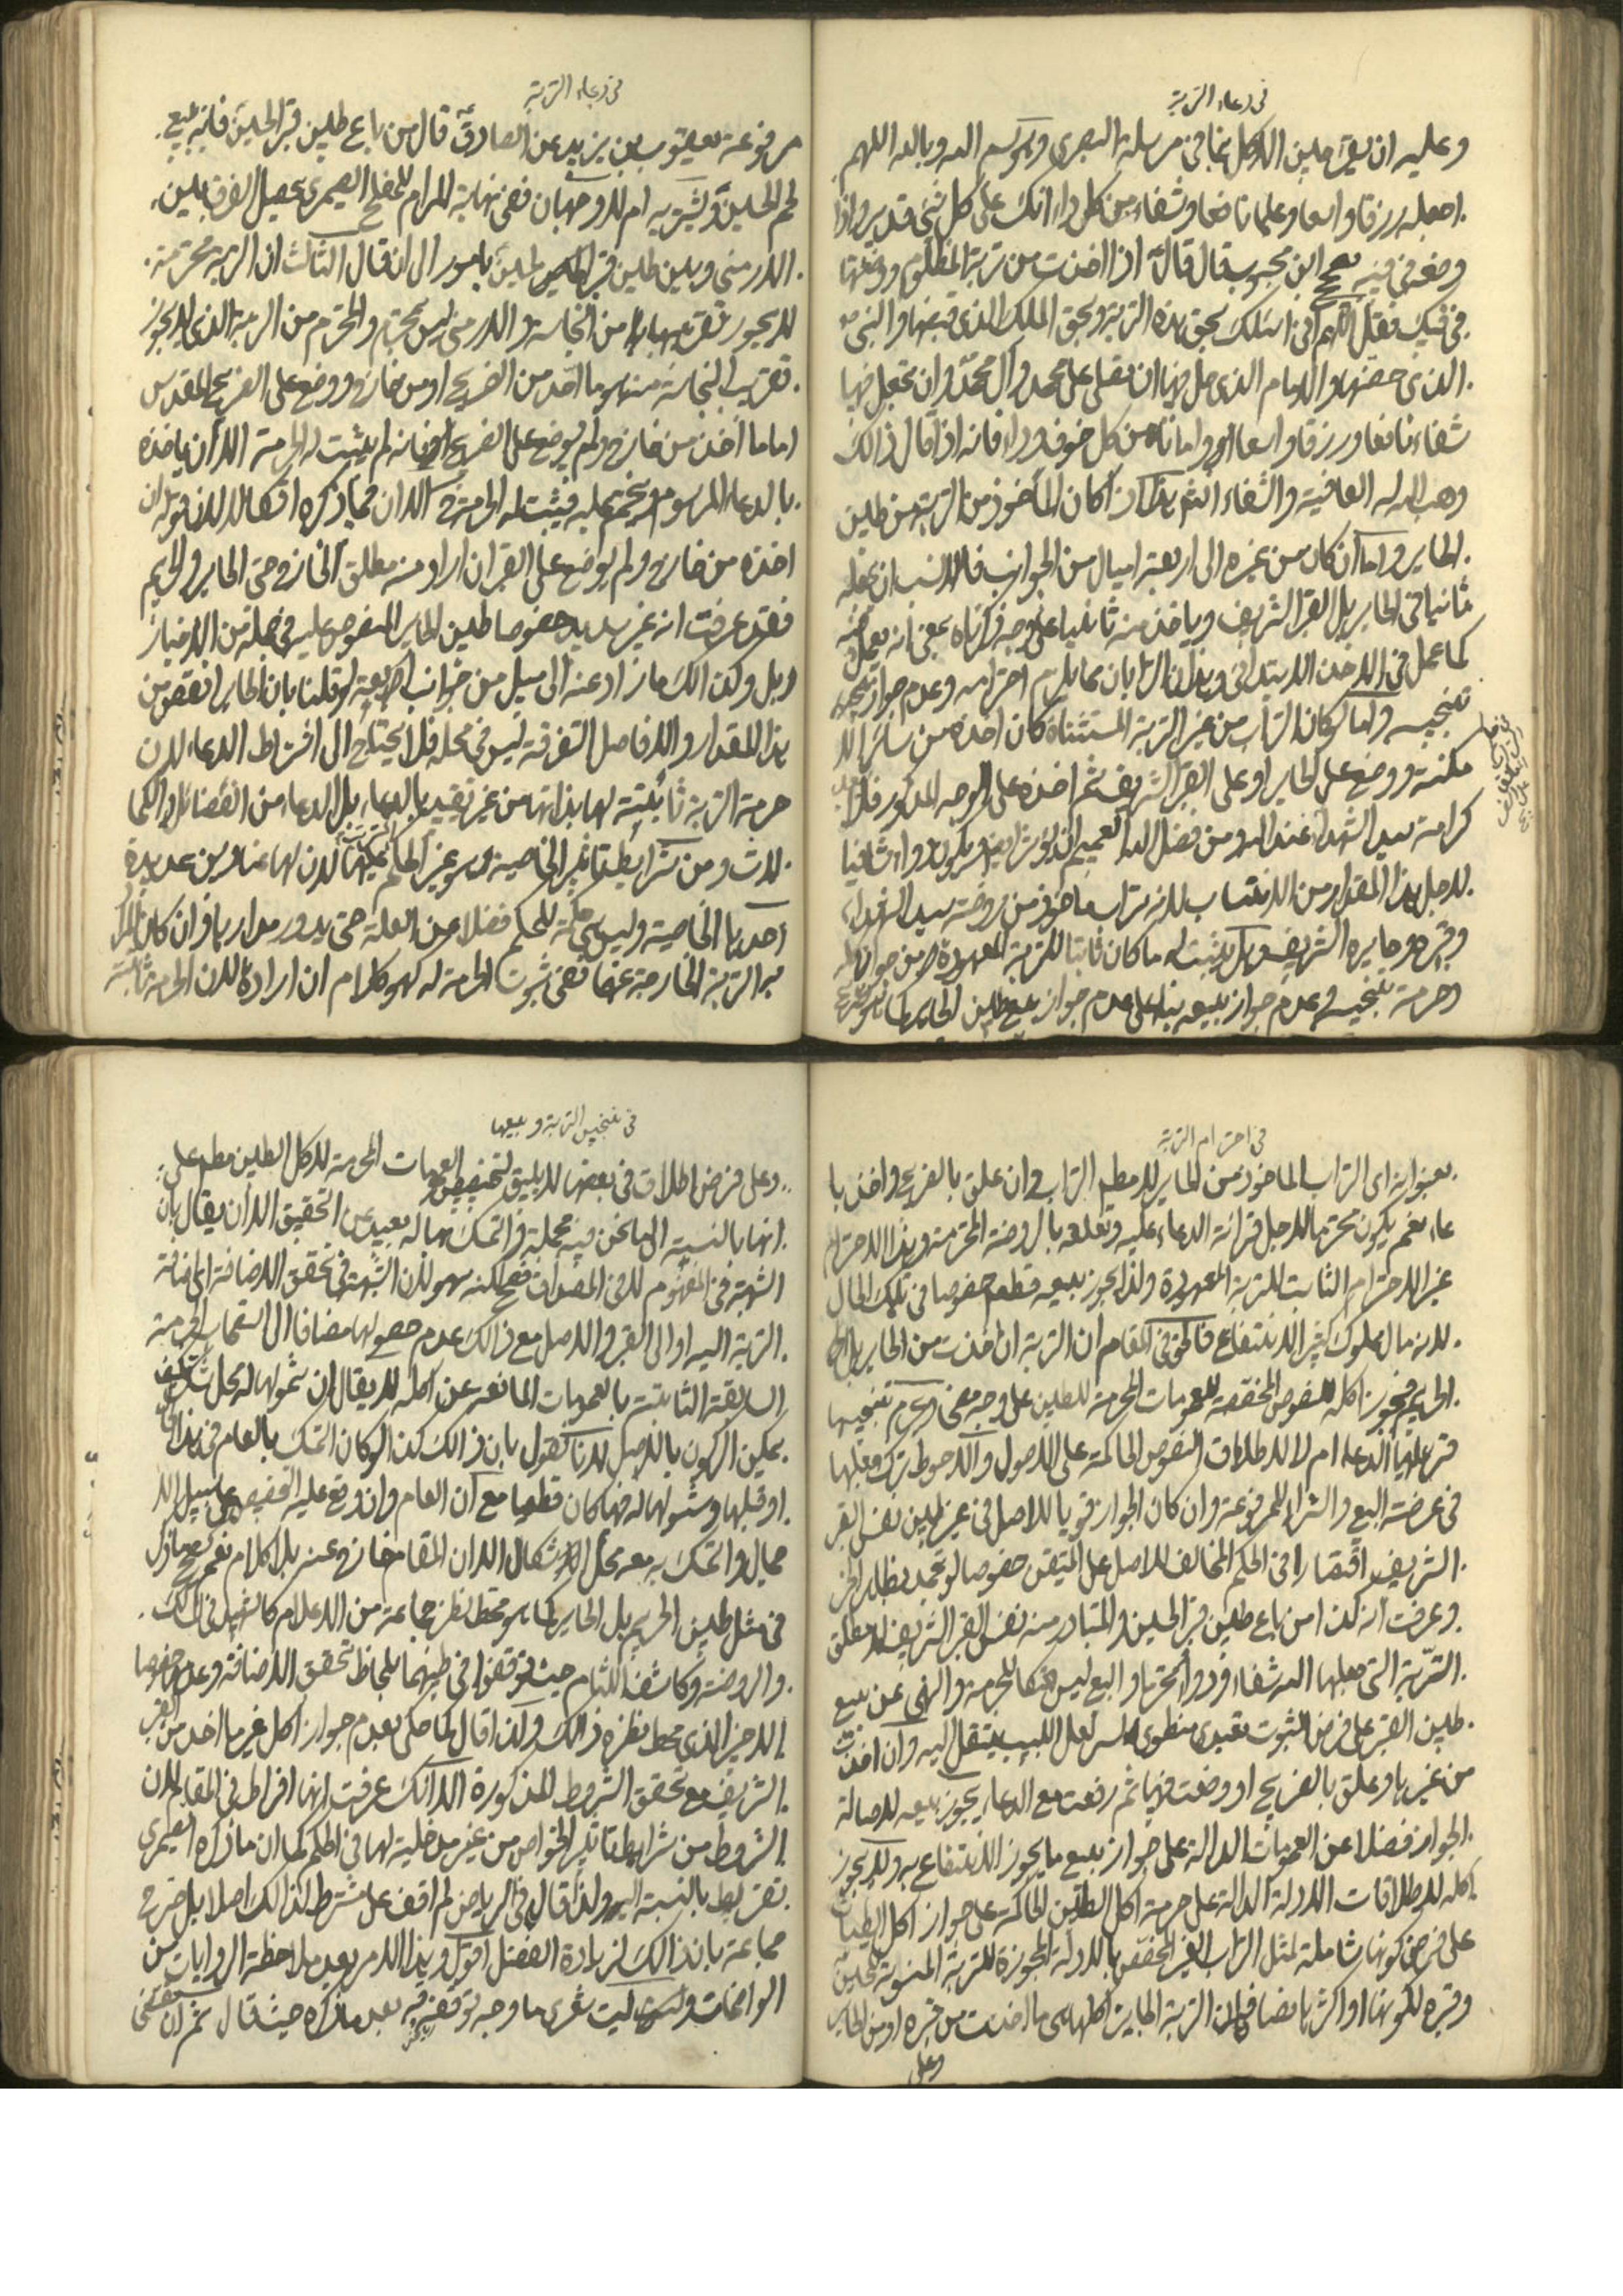 في دعاء التربة
وعليه ان يقرء حين الاكل بما في مرسلة البصري وهو بسم الله وبالله اللهم
اجعله رزقا واسعا وعلما نافعا وشفاء من كل داء انك على كل شيء قدير واذا
وضعه في فيه صح ابن محبوب قال قال اذا اخذت من تربة المظلوم ووضعتها
في فيك فقل اللهم اني اسئلك بحق هذه التربة وبحق الملك الذي قبضها والنبي
الذي حضنها والامام الذي حل فيها ان تصلي على محمد وآل محمد وان تجعل فيها
شفاء نافعا ورزقا واسعا وامانا من كل خوف وداء فانه اذا قال ذالك
وهب الله له العافية والشفاء انتهى هذا كله اذا كان المأخوذ من التربة من طين
الحاير واما ان كان من غيره الى اربعة اميال من الجوانب فالانسب ان يجعله
ثانيا في الحاير بل القبر الشريف وياخذ منه ثانيا على وجه ذكرناه بمعنى انه يعمل
كما عمل في الاخذ الابتدائي وهذان الترابان مما يلزم احترامه وعدم جواز
تنجيسه واما لو كان التراب من غير التربة المستثناة كان اخذه من سائر الا
مكنة ووضع على الحاير او على القبر الشريف ثم اخذه على الوجه المذكور فلا
كرامة سيد الشهداء عند الله ومن فضل الله العميم ان يؤثر ايضا ويكون دواء شافيا
لاجل هذا المقدار من الانتساب لانه تراب ماخوذ من روضة سيد الشهداء
وقبره وحايره الشريف وهل يثبت له ما كان ثابتا للتربة المعهودة من جواز اكله
وحرمة تنجيسه وعدم جواز بيعه بناء على عدم جواز بيع طين الحاير كما هو
في دعاء التربة
مرفوعة يعقوب بن يزيد عن الصادق قال من باع طين قبر الحسين فانه يبيع
لحم الحسين ويشتريه ام لا وجهان ففي نهاية المرام للمفلح الصيمري تحصيل الفرق بين
الارمني وبين طين قبر الحسين بامور الى ان قال الثالث ان التربة محترمة
لا يجوز تقريبها من النجاسة والارمني ليس بمحترم والمحترم من التربة الذي لا يجوز
تقريب النجاسة منه هو ما اخذ من الضريح او من خارج ووضع على الضريح المقدس
اما ما اخذ من خارج ولم يوضع على الضريح فانه لم يثبت له الحرمة الا ان ياخذه
بالدعاء المرسوم ويختم عليه فيثبت له الحرمة الا ان فيما ذكره اشكالا لان قوله ان
اخذه من خارج ولم يوضع على القبر ان اراد منه مطلق الخارج حتى الحاير والحريم
فقد عرفت انه غير سديد خصوصا طين الحاير المنصوص عليه في جملة من الاخبار
وبل وكذالك ما زاد عنه الى ميل من جوانب اربعة لو قلنا بان الحاير انقص من
هذا المقدار والا فاصل التفرقة ليس في محله فلا يحتاج الى اشتراط الدعاء لان
حرمة التربة ثابتة لها بذاتها من غير تقييد بالدعاء بل الدعاء من الفضائل والكما
لات ومن شرايط تاثير الخاصية وهو غير الحكم لان لها عناوين عديدة
احدها الخاصية وليس حكمة للحكم فضلا عن العلة حتى يدور مدارها وان كان
به التربة الخارجة عنها ففي ثبوت الحرمة له كلام ان اراد لان الحرمة ثابتة
في احترام التربة
بعنوانه اي التراب الماخوذ من الحاير لا مطلق التراب وان علق بالضريح واخذ با
عاء نعم يكون محترما لاجل قرائة الدعاء عليه وتعلقه بالروضة المحترمة وهذا الاحترام
غير الاحترام الثابت للتربة المعهودة ولذا يجوز بيعه قطعا خصوصا في تلك الحال
لانه مال مملوك كثير الانتفاع فالحق في المقام ان التربة ان اخذت من الحاير بل
الحريم فيجوز اكله للنصوص المخصصة للعمومات المحرمة للطين على وجه مضى ويحرم تنجيسها
قرء عليها الدعاء ام لا لاطلاق النصوص الحاكمة على الاصول والاحوط ترك جعلها
في عرضة البيع والشراء للمرفوعة وان كان الجواز قويا للاصل في غير طين نفس القبر
الشريف اقتصارا في الحكم المخالف للاصل على المتيقن خصوصا لو تجمد بظاهر الخبر
وعرفت انه كذا من باع طين قبر الحسين والمتبادر منه نفس القبر الشريف لا مطلق
التربة التي جعلها الله شفاء ودواء محترما والبيع ليس هتكا للحرمة والنهي عن بيع
طين القبر على فرض الثبوت تعبدي منطوي لسر لعل اللبيب ينتقل اليه وان اخذت
من غيرها وعلق بالضريح او وضعت فيها ثم رفعت مع الدعاء يجوز بيعه لاصالة
الجواز فضلا عن العمومات الدالة على جواز بيع ما يجوز الانتفاع به ولا يجوز
اكله لاطلاقات الادلة الدالة على حرمة اكل الطين الحاكمة على جواز اكل الطيبات
على فرض كونها شاملة لمثل التراب الغير المخصص بالادلة المجوزة للتربة المنسوبة للحسين
وقبره لكونها او اكثرها مضافا لان التربة الجايزة اكلها هي ما اخذت من قبره او من الحاير
وعلى
في تنجيس التربة وبيعها
وعلى فرض اطلاق في بعضها لا يليق لتخصيص العمومات المحرمة لاكل الطين مطلقا على
انها بالنسبة الى ما نحن فيه مجملة والتمسك بها له بعيد عن التحقيق الا ان يقال بان
الشبهة في المفهوم لا في المصداق لكنه سهو لان الشبهة في تحقق الاضافة اي اضافة
التربة اليه او الى القبر والاصل مع ذالك عدم حصولها مضافا الى استصحاب الحرمة
السابقة الثابتة بالعمومات المانعة عن اكله لا يقال ان شمولها له محل شك كيف
يمكن الركون بالاصل لانا نقول بان ذالك كذا لو كان التمسك بالعام في هذا الحال
او قبلها وشمولها له فيها كان قطعيا مع ان العام وان وقع عليه التخصيص على سبيل الا
جمال والتمسك به معه محل الاشكال الا ان المقام خارج عنه بلا كلام نعم يصح ما ذكر
في مثل طين الحريم بل الحاير كما هو محط نظر جماعة من الاعلام كالشهيد في المسالك
والروضة وكاشف اللثام حيث توقفوا في طينهما بلحاظ تحقق الاضافة وعدمه خصوصا
الاخير الذي محط نظره ذالك ولذا قال كما حكى بعدم جواز اكل غير ما اخذ من القبر
الشريف مع تحقق الشروط المذكورة الا انك عرفت انها افراط في المقام لان
الشروط من شرايط تاثير الخواص من غير مدخلية لها في الحكم كما ان ما ذكره الصيمري
تفريط بالنسبة اليه ولذا قال في الرياض لم اقف على مشترط لذالك اصلا بل صرح
جماعة بان ذالك لزيادة الفضل اقول وهذا الامر بعد ملاحظة الروايات من
الواضحات وليت شعري ما وجه توقفه فيه بعد ما ذكره حيث قال ثم ان مقتضى